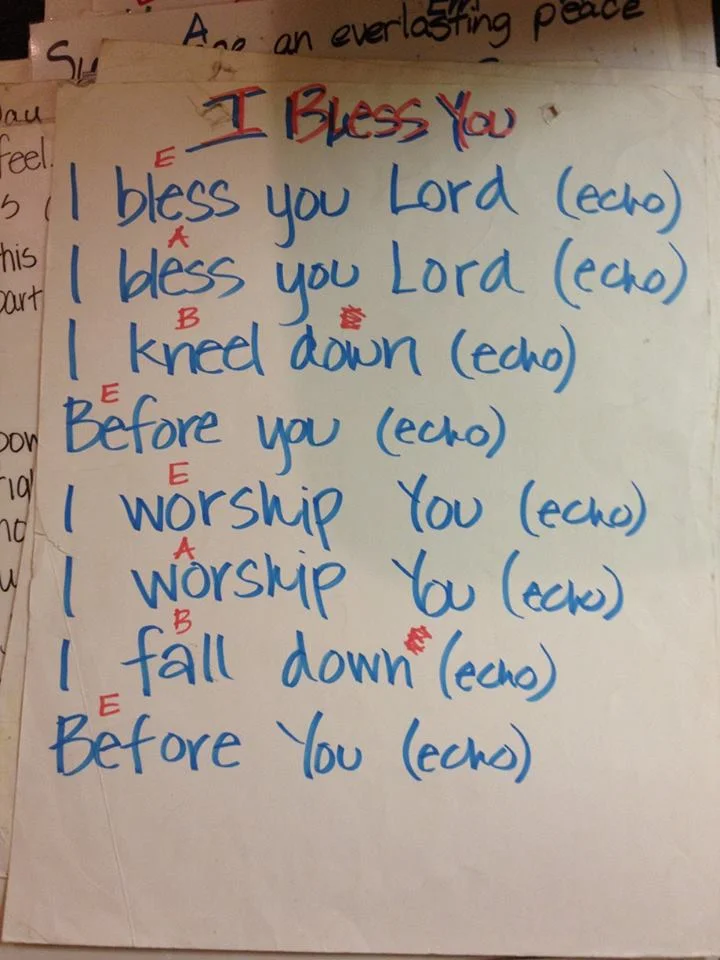 A Em
are an everlasting peace
Su
feel.
his
part
I Bless You
E
I bless you Lord (echo)
A
I bless you Lord (echo)
B
I kneel down (echo)
E
Before you (echo)
E
I worship You (echo)
A
I worship You (echo)
B
I fall down (echo)
E
Before You (echo)